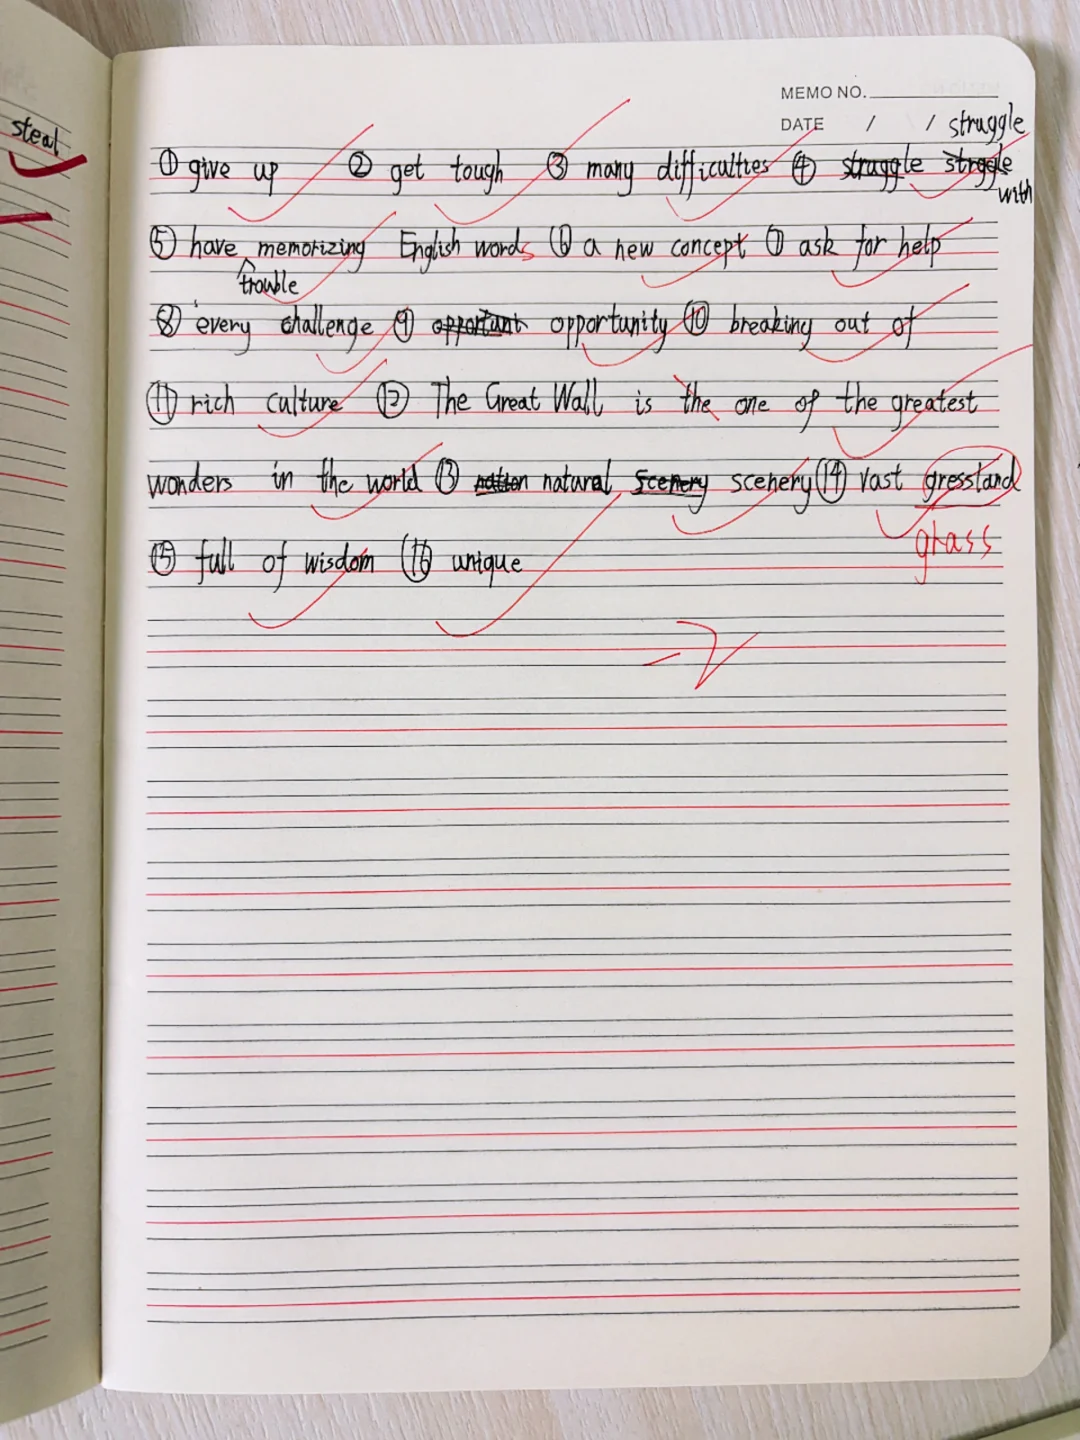 steal
MEMO NO.
DATE / / struggle
① give up ② get tough ③ many difficulties ④ struggle strggle with
⑤ have memorizing English words ⑥ a new concept ⑦ ask for help
trouble
⑧ every challenge ⑨ opportant opportunity ⑩ breaking out of
⑪ rich culture ⑫ The Great Wall is the one of the greatest
wonders in the world ⑬ nation natural scenery scenery ⑭ vast gressland
grass
⑮ full of wisdom ⑯ unique